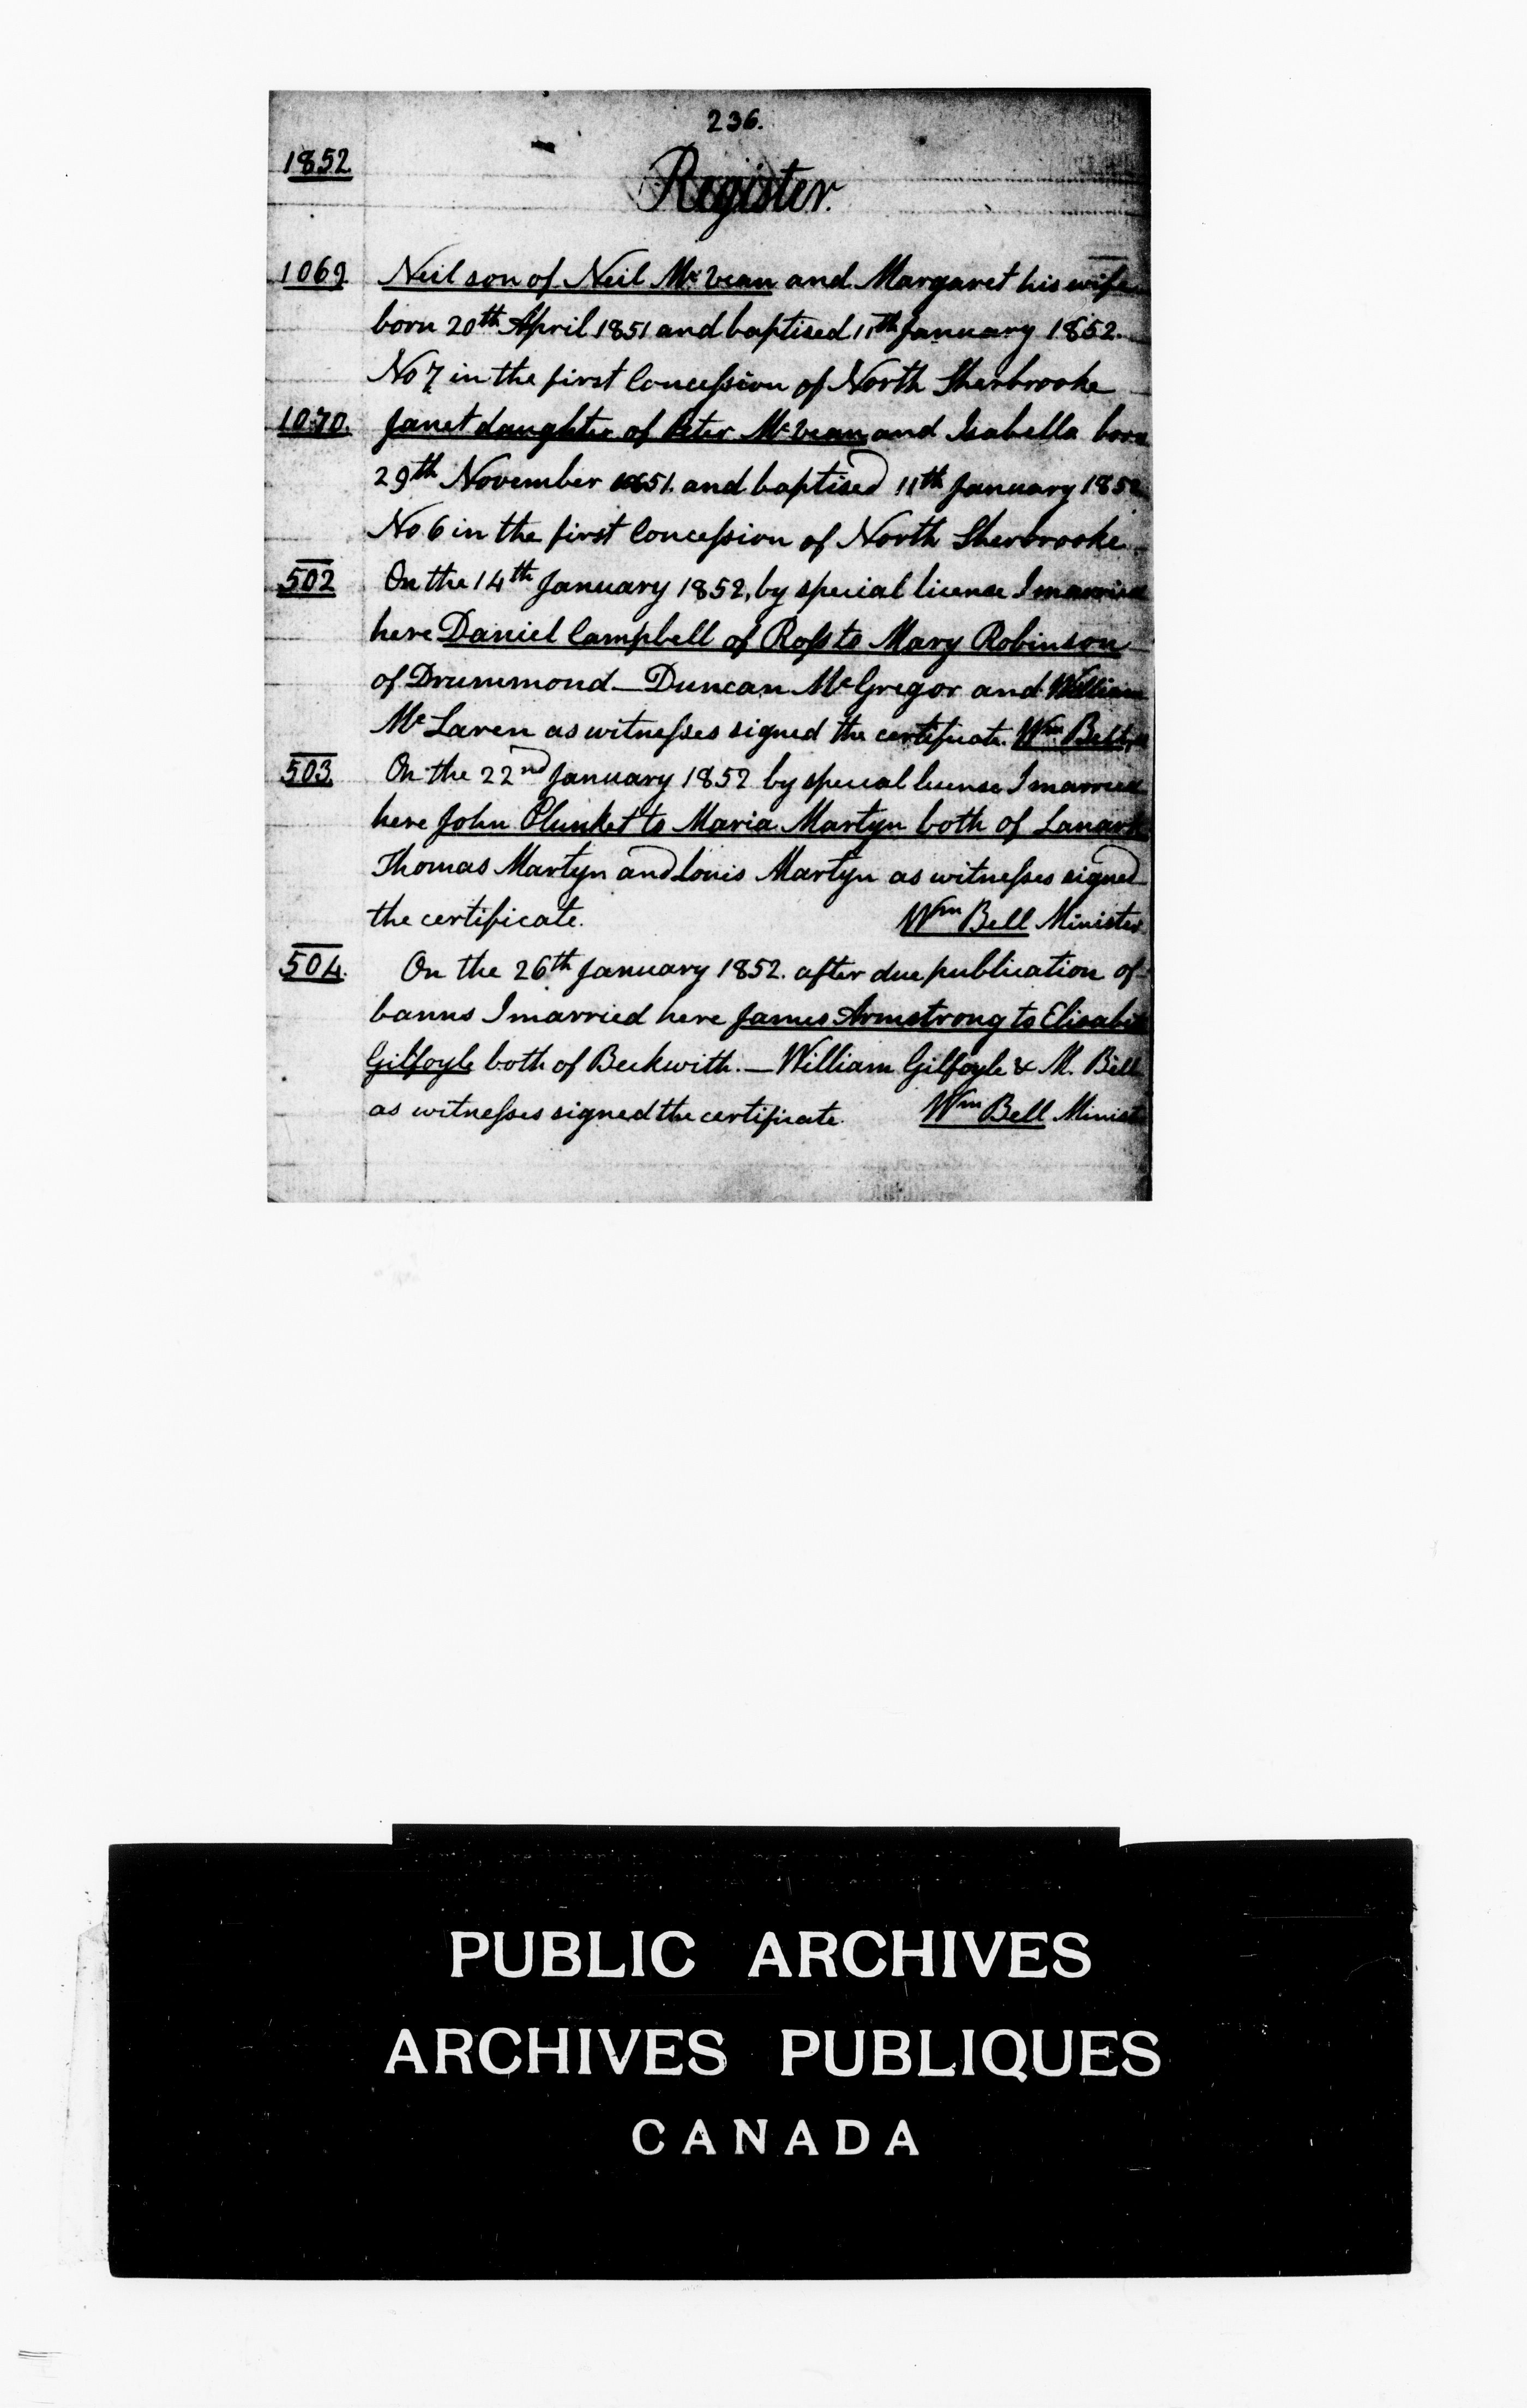 236.
1852
Register.
1069 Neil son of Neil McVean and Margaret his wife
born 20th April 1851 and baptised 11th January 1852.
No 7 in the first Concession of North Sherbrooke
1070. Janet daughter of Peter McVean and Isabella born
29th November 1851. and baptised 11th January 1852
No 6 in the first Concession of North Sherbrooke
502 On the 14th January 1852, by special license I married
here Daniel Campbell of Ross to Mary Robinson
of Drummond — Duncan McGregor and William
McLaren as witnesses signed the certificate. Wm Bell
503 On the 22nd January 1852 by special license I married
here John Plunket to Maria Martyn both of Lanark
Thomas Martyn and Louis Martyn as witnesses signed
the certificate. Wm Bell Minister
504. On the 26th January 1852. after due publication of
banns I married here James Armstrong to Elisabeth
Gilfoyle both of Beckwith. — William Gilfoyle & M. Bell
as witnesses signed the certificate. Wm Bell Minist
PUBLIC ARCHIVES
ARCHIVES PUBLIQUES
CANADA